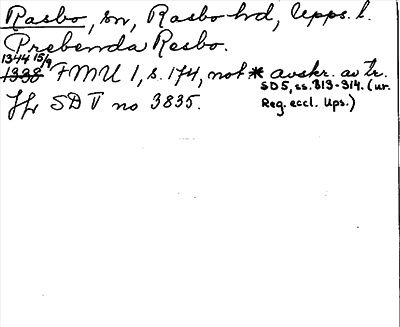 Rasbo, sn, Rasbo hd, Upps. l.
Prebenda Resbo.
1344 15/9
1338 FMU 1, s. 174, not * avskr. av tr.
SD5, ss. 313-314. (ur.
Jfr SD V no 3835.
Reg. eccl. Ups.)